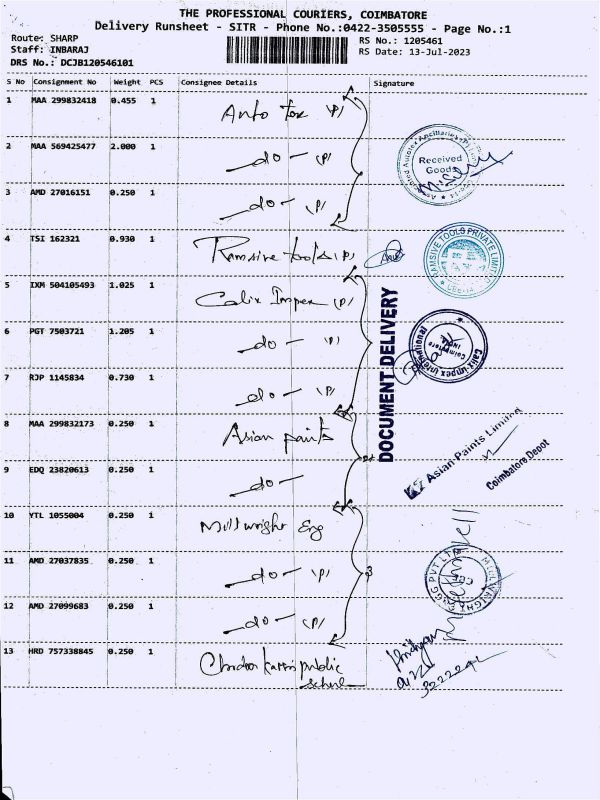 THE PROFESSIONAL COURIERS, COIMBATORE
Delivery Runsheet - SITR - Phone No.:0422-3505555 - Page No.:1
Route: SHARP
Staff: INBARAJ
DRS No.: DCJB120546101
RS No.: 1205461
RS Date: 13-Jul-2023
S No Consignment No Weight PCS Consignee Details Signature
1 MAA 299832418 0.455 1 Auto tex (P)
2 MAA 569425477 2.000 1 do (P)
3 AMD 27016151 0.250 1 do (P)
Received
Goods
4 TSI 162321 0.930 1 Ramsive tools (P)
RAMSIVE TOOLS PRIVATE LIMITED
5 IXM 504105493 1.025 1 Calix Impex (P)
6 PGT 7503721 1.205 1 do (P)
7 RJP 1145834 0.730 1 do (P)
Calix Impex International
Coimbatore
DOCUMENT DELIVERY
8 MAA 299832173 0.250 1 Asian paints
9 EDQ 23820613 0.250 1 do
Asian Paints Limited
Coimbatore Depot
10 YTL 1055004 0.250 1 Millwright Eng
11 AMD 27037835 0.250 1 do (P)
12 AMD 27099683 0.250 1 do (P)
3
MILLWRIGHT ENGG PVT LTD
13 HRD 757338845 0.250 1 public
school